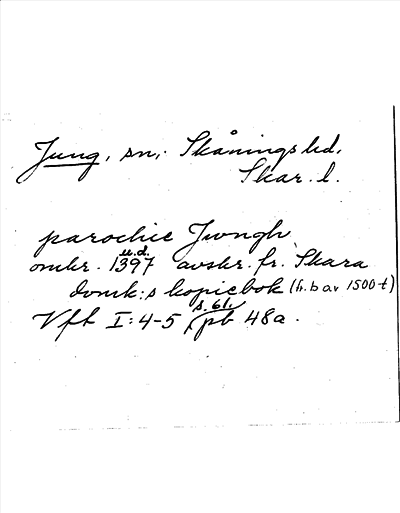 Jung, sn, Skånings hd.
Skar. l.
parochie Jwngh
u.d.
omkr. 1397 avskr. fr. Skara
domk:s kopiebok (h.b av 1500-t)
s. 61.
Vft I:4-5, pb 48a.